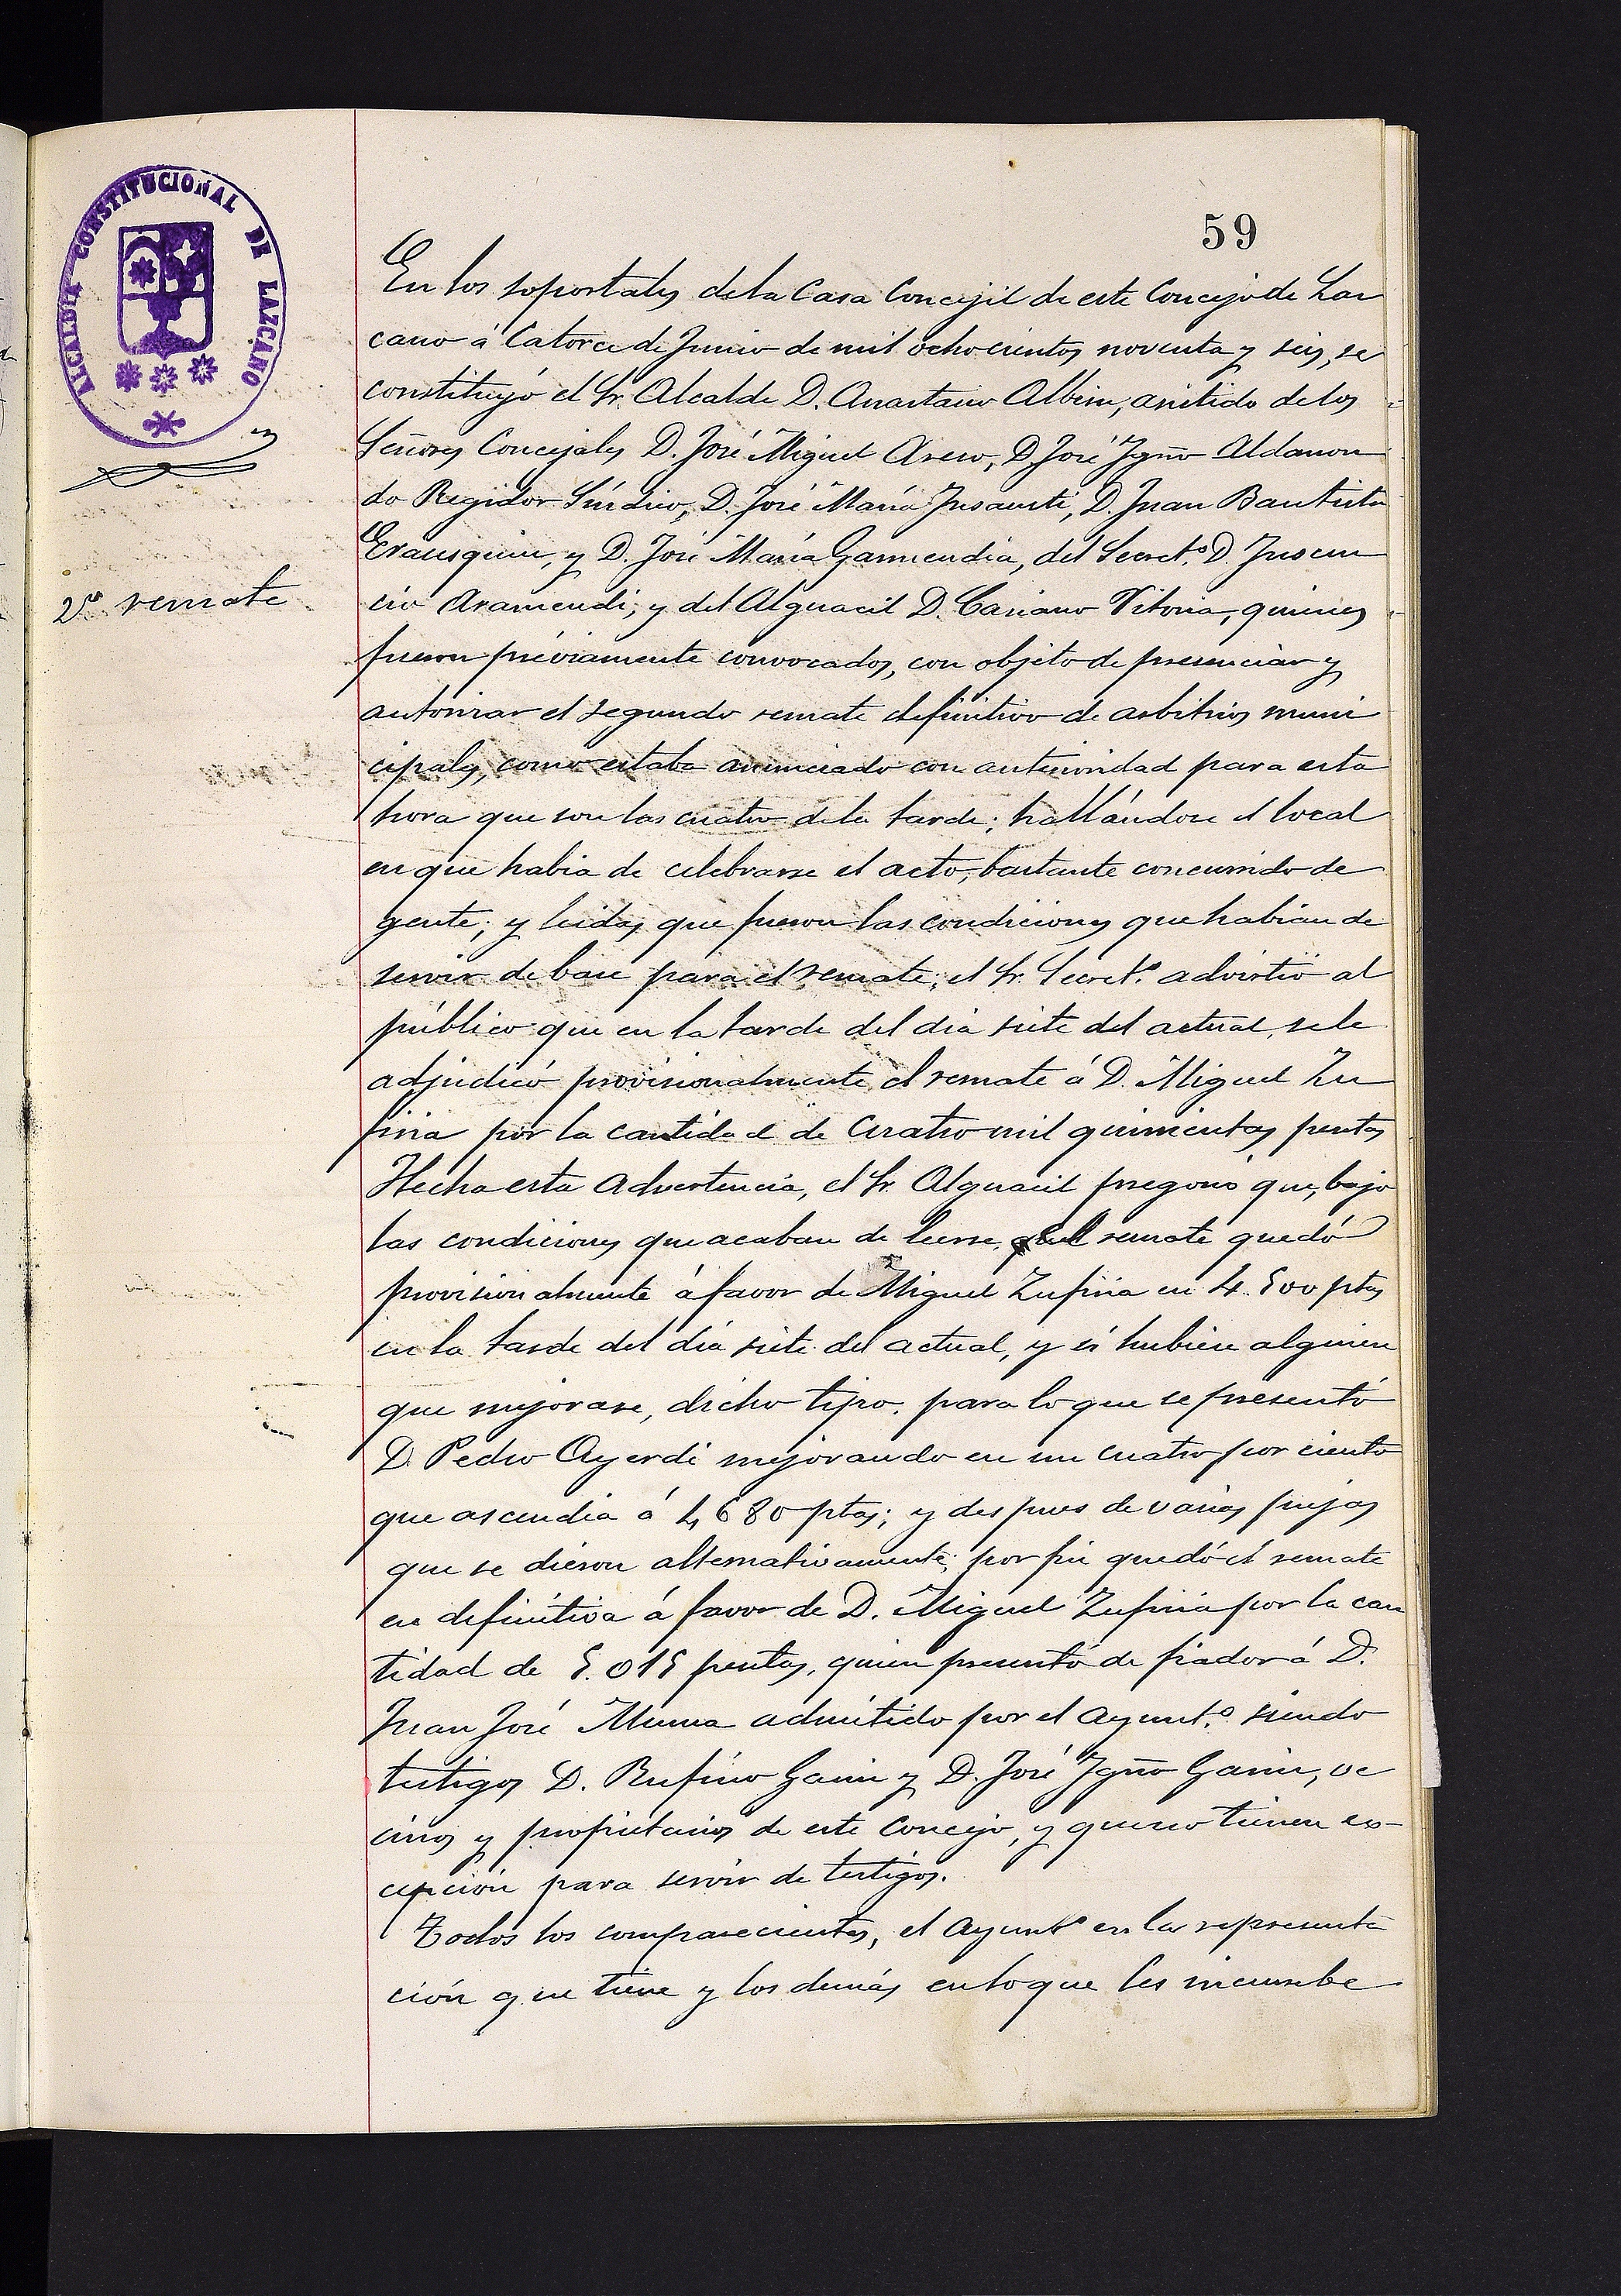 59
ALCALDIA CONSTITUCIONAL DE LAZCANO
2º remate
En los soportales de la Casa Concejil de este Concejo de Laz
cano á Catorce de Junio de mil ochocientos noventa y seis, se
constituyó el Sr. Alcalde D. Anastasio Albisu, asistido de los
Señores Concejales D. José Miguel Aseso, D. José Ygnº Aldason
do Regidor Síndico, D. José María Insausti, D. Juan Bautista
Erausquin, y D. José María Garmendia, del Secretº D. Inocen
cio Aramendi; y del Alguacil D. Casiano Vitoria, quienes
fueron préviamente convocados, con objeto de presenciar y
autorizar el segundo remate definitivo de arbitrios muni
cipales, como estaba anunciado con anterioridad para esta
hora que son las cuatro de la tarde; hallándose el local
en que habia de celebrarse el acto, bastante concurrido de
gente; y leidas que fueron las condiciones que habian de
servir de base para el remate; el Sr. Secretº advirtió al
público que en la tarde del dia siete del actual, se le
adjudicó provisionalmente el remate á D. Miguel Zu
firia por la cantidad de Cuatro mil quinientas pesetas
Hecha esta advertencia, el Sr. Alguacil pregonó que, bajo
las condiciones que acaban de leerse, el remate quedó
provisionalmente á favor de Miguel Zufiria en 4.500 ptas
en la tarde del día siete del actual, y si hubiese alguien
que mejorase, dicho tipo, para lo que se presentó
D. Pedro Ayerdi mejorando en un cuatro por ciento
que ascendia á 4680 ptas; y despues de varias pujas
que se dieron alternativamente; por fin quedó el remate
en definitiva á favor de D. Miguel Zufiria por la can
tidad de 5.015 pesetas, quien presentó de fiador á D.
Juan José Munoa admitido por el Ayuntº siendo
testigos D. Rufino Garin y D. José Ygnº Garin, ve
cinos y propietarios de este Concejo, y que no tienen es-
cepción para servir de testigos.
Todos los comparecientes, el Ayuntº en la representa
ción que tiene y los demás en lo que les incumbe